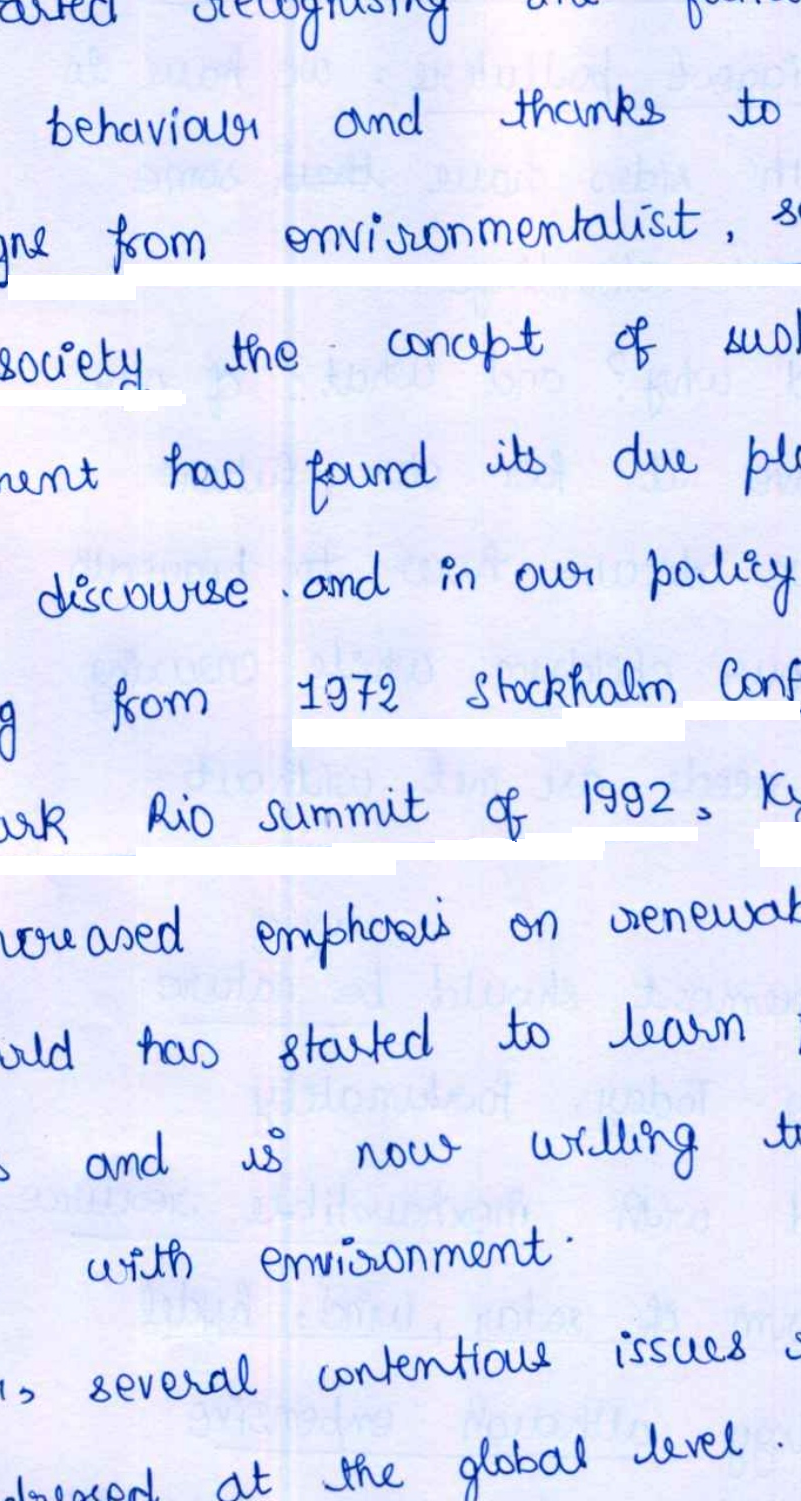 recognising and
behaviour and thanks to
from environmentalist,
society the concept of
has found its due
discourse and in our policy
from 1972 Stockholm
Rio summit of 1992,
emphasis on
has started to learn
and is now willing
with environment.
several contentious issues
at the global level.